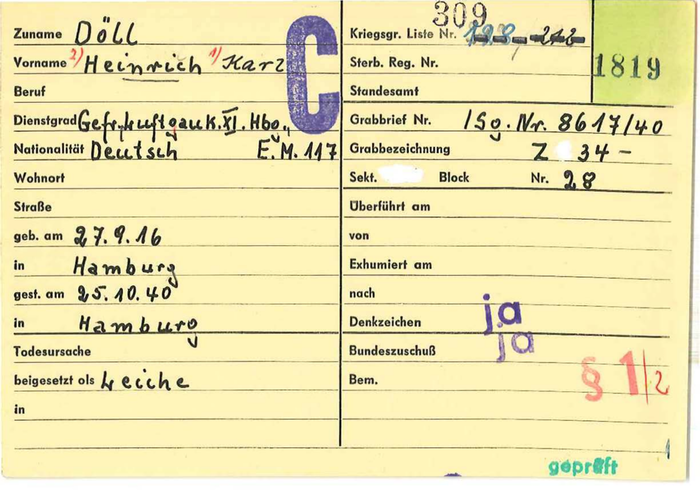 Zuname Döll
Vorname 2) Heinrich 1) Karl
Beruf
Dienstgrad Gefr. Luftgauk. XI. Hbg.,
Nationalität Deutsch E.M. 117
Wohnort
Straße
geb. am 27.9.16
in Hamburg
gest. am 25.10.40
in Hamburg
Todesursache
beigesetzt als Leiche
in
C
309
Kriegsgr. Liste Nr.
Sterb. Reg. Nr.
1819
Standesamt
Grabbrief Nr. Sg. Nr. 8617/40
Grabbezeichnung Z 34 -
Sekt. Block Nr. 28
Überführt am
von
Exhumiert am
nach
Denkzeichen ja
Bundeszuschuß ja
Bem. § 1/2
geprüft